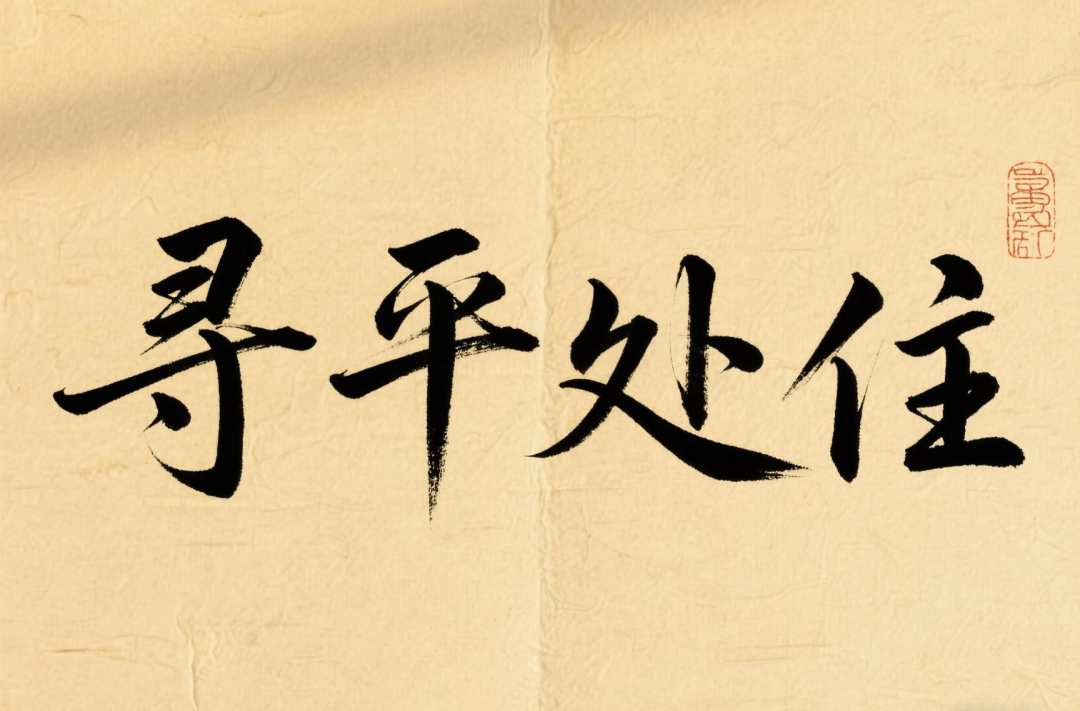 寻平处住